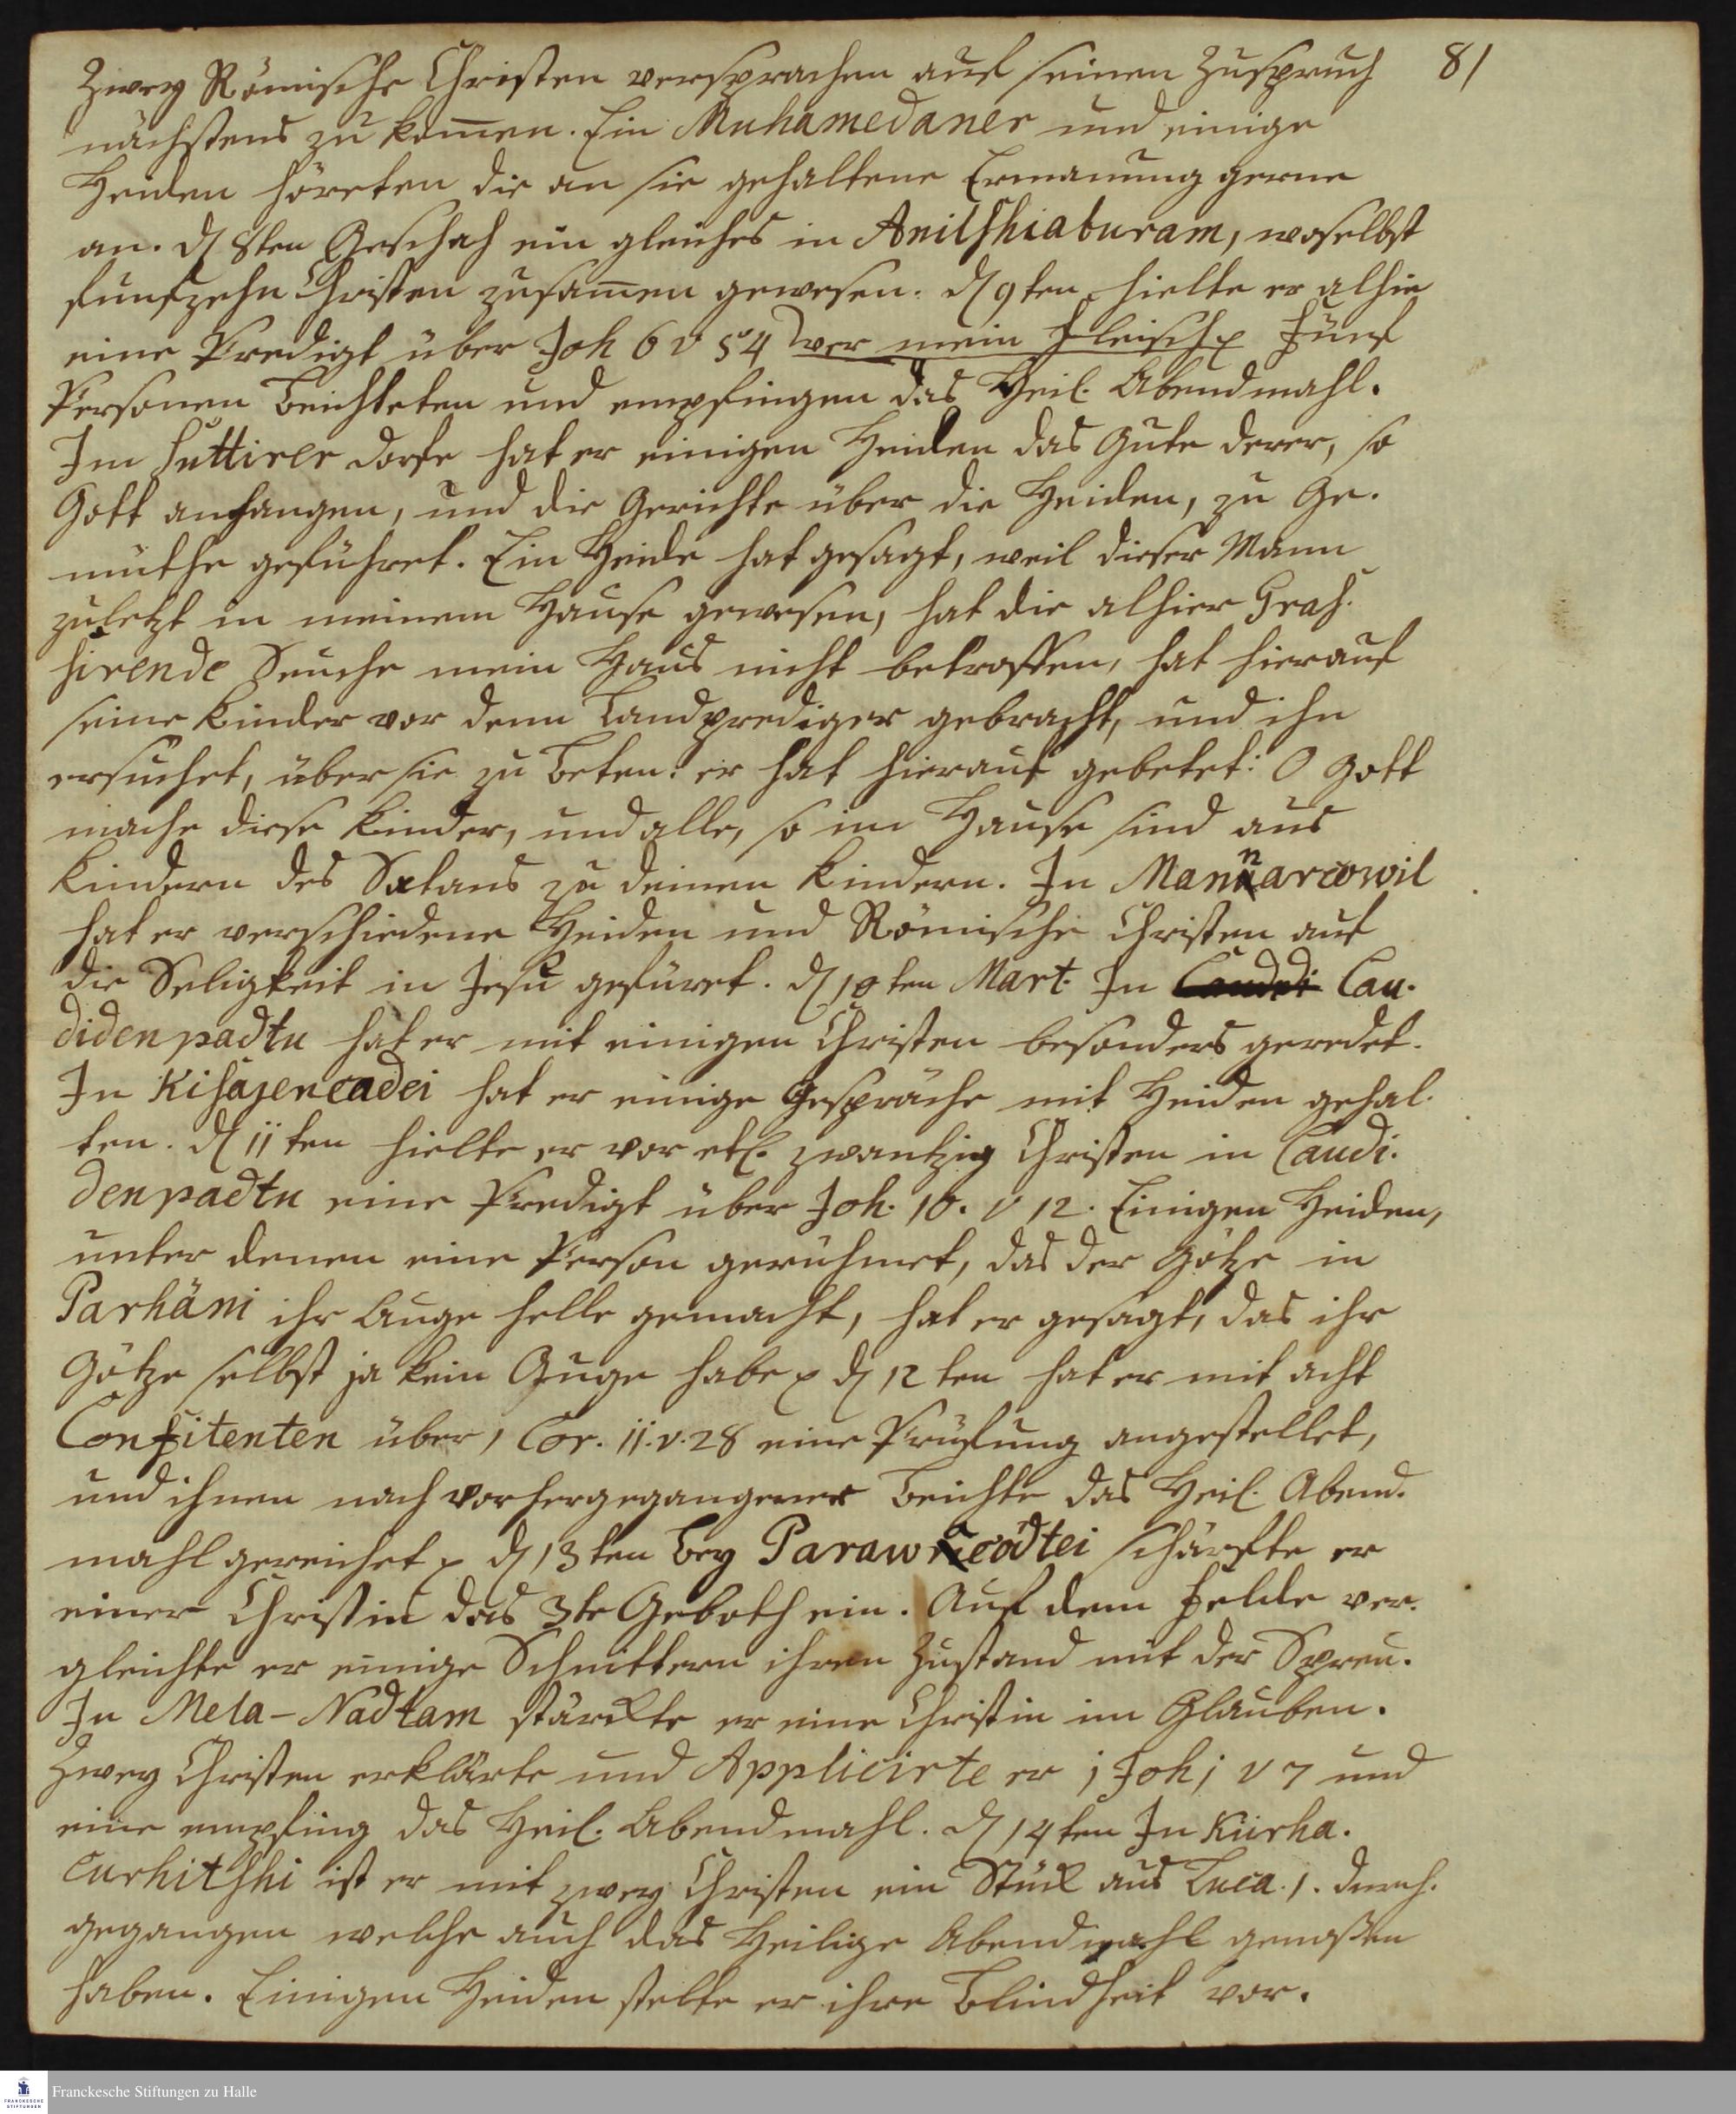 81
Zwey Römische Christen versprachen auf seinen Zuspruch
nächstens zu kom̅en. Ein Muhamedaner und einige
Heiden höreten die an sie gehaltene Ermanung gerne
an. d 8ten Geschah ein gleiches in Anilshiaburam, woselbst
funfzehn Christen zusam̅en gewesen. d 9ten hielte er alhie
eine Predigt über Joh 6 v 54 wer mein Fleisch Fünf
Personen beichteten und empfingen das Heil. Abendmahl.
Im Suttirer dorfe hat er einigen Heiden das Gute derer, so
Gott anhangen, und die Gerichte über die Heiden, zu Ge-
müthe geführet. Ein Heide hat gesagt, weil dieser Mann
zuletzt in meinem Hause gewesen, hat die alhier Gras-
sirende Seuche mein Haus nicht betroffen, hat hierauf
seine Kinder vor denn Landprediger gebracht, und ihn
ersuchet, über sie zu beten: er hat hierauf gebetet: O Gott
mache diese Kinder, und alle, so im Hause sind aus
Kindern des Satans zu deinen Kindern. In Mannarcowil
hat er verschiedene Heiden und Römische Christen auf
die Seligkeit in Jesu gefüret. d 10ten Mart. In Candedi Cau-
didenpadtu hat er mit einigen Christen besonders geredet.
In Kisasencadei hat er einige Gespräche mit Heiden gehal-
ten. d 11ten hielte er vor etl. zwantzig Christen in Caudi-
denpadtu eine Predigt über Joh. 10. v 12. Einigen Heiden,
unter denen eine Person gerühmet, das der Götze in
Parhäni ihr Auge helle gemacht, hat er gesagt, das ihr
Götze selbst ja kein Auge habe d 12ten hat er mit acht
Confitenten über 1 Cor. 11. v. 28 eine Prüfung angestellet,
und ihnen nach vorhergegangener Beichte das Heil. Abend-
mahl gereichet d 13ten bey Parawcödtei schärfte er
einer Christin das 3te Geboth ein. Auf dem Felde ver-
gleichte er einige Schnittern ihren Zustand mit der Spreu.
In Mela-Nadtam stärckte er eine Christin im Glauben.
Zwey Christen erklärte und Applicirte er 1 Joh 1 v 7 und
eine empfing das Heil. Abendmahl. d 14ten In Kurha-
curhitshi ist er mit zwey Christen ein Stück aus Luca. 1. durch-
gegangen welche auch das Heilige Abendmahl genoßen
haben. Einigen Heiden stelte er ihre Blindheit vor.
FRANCKESCHE
STIFTUNGEN
Franckesche Stiftungen zu Halle